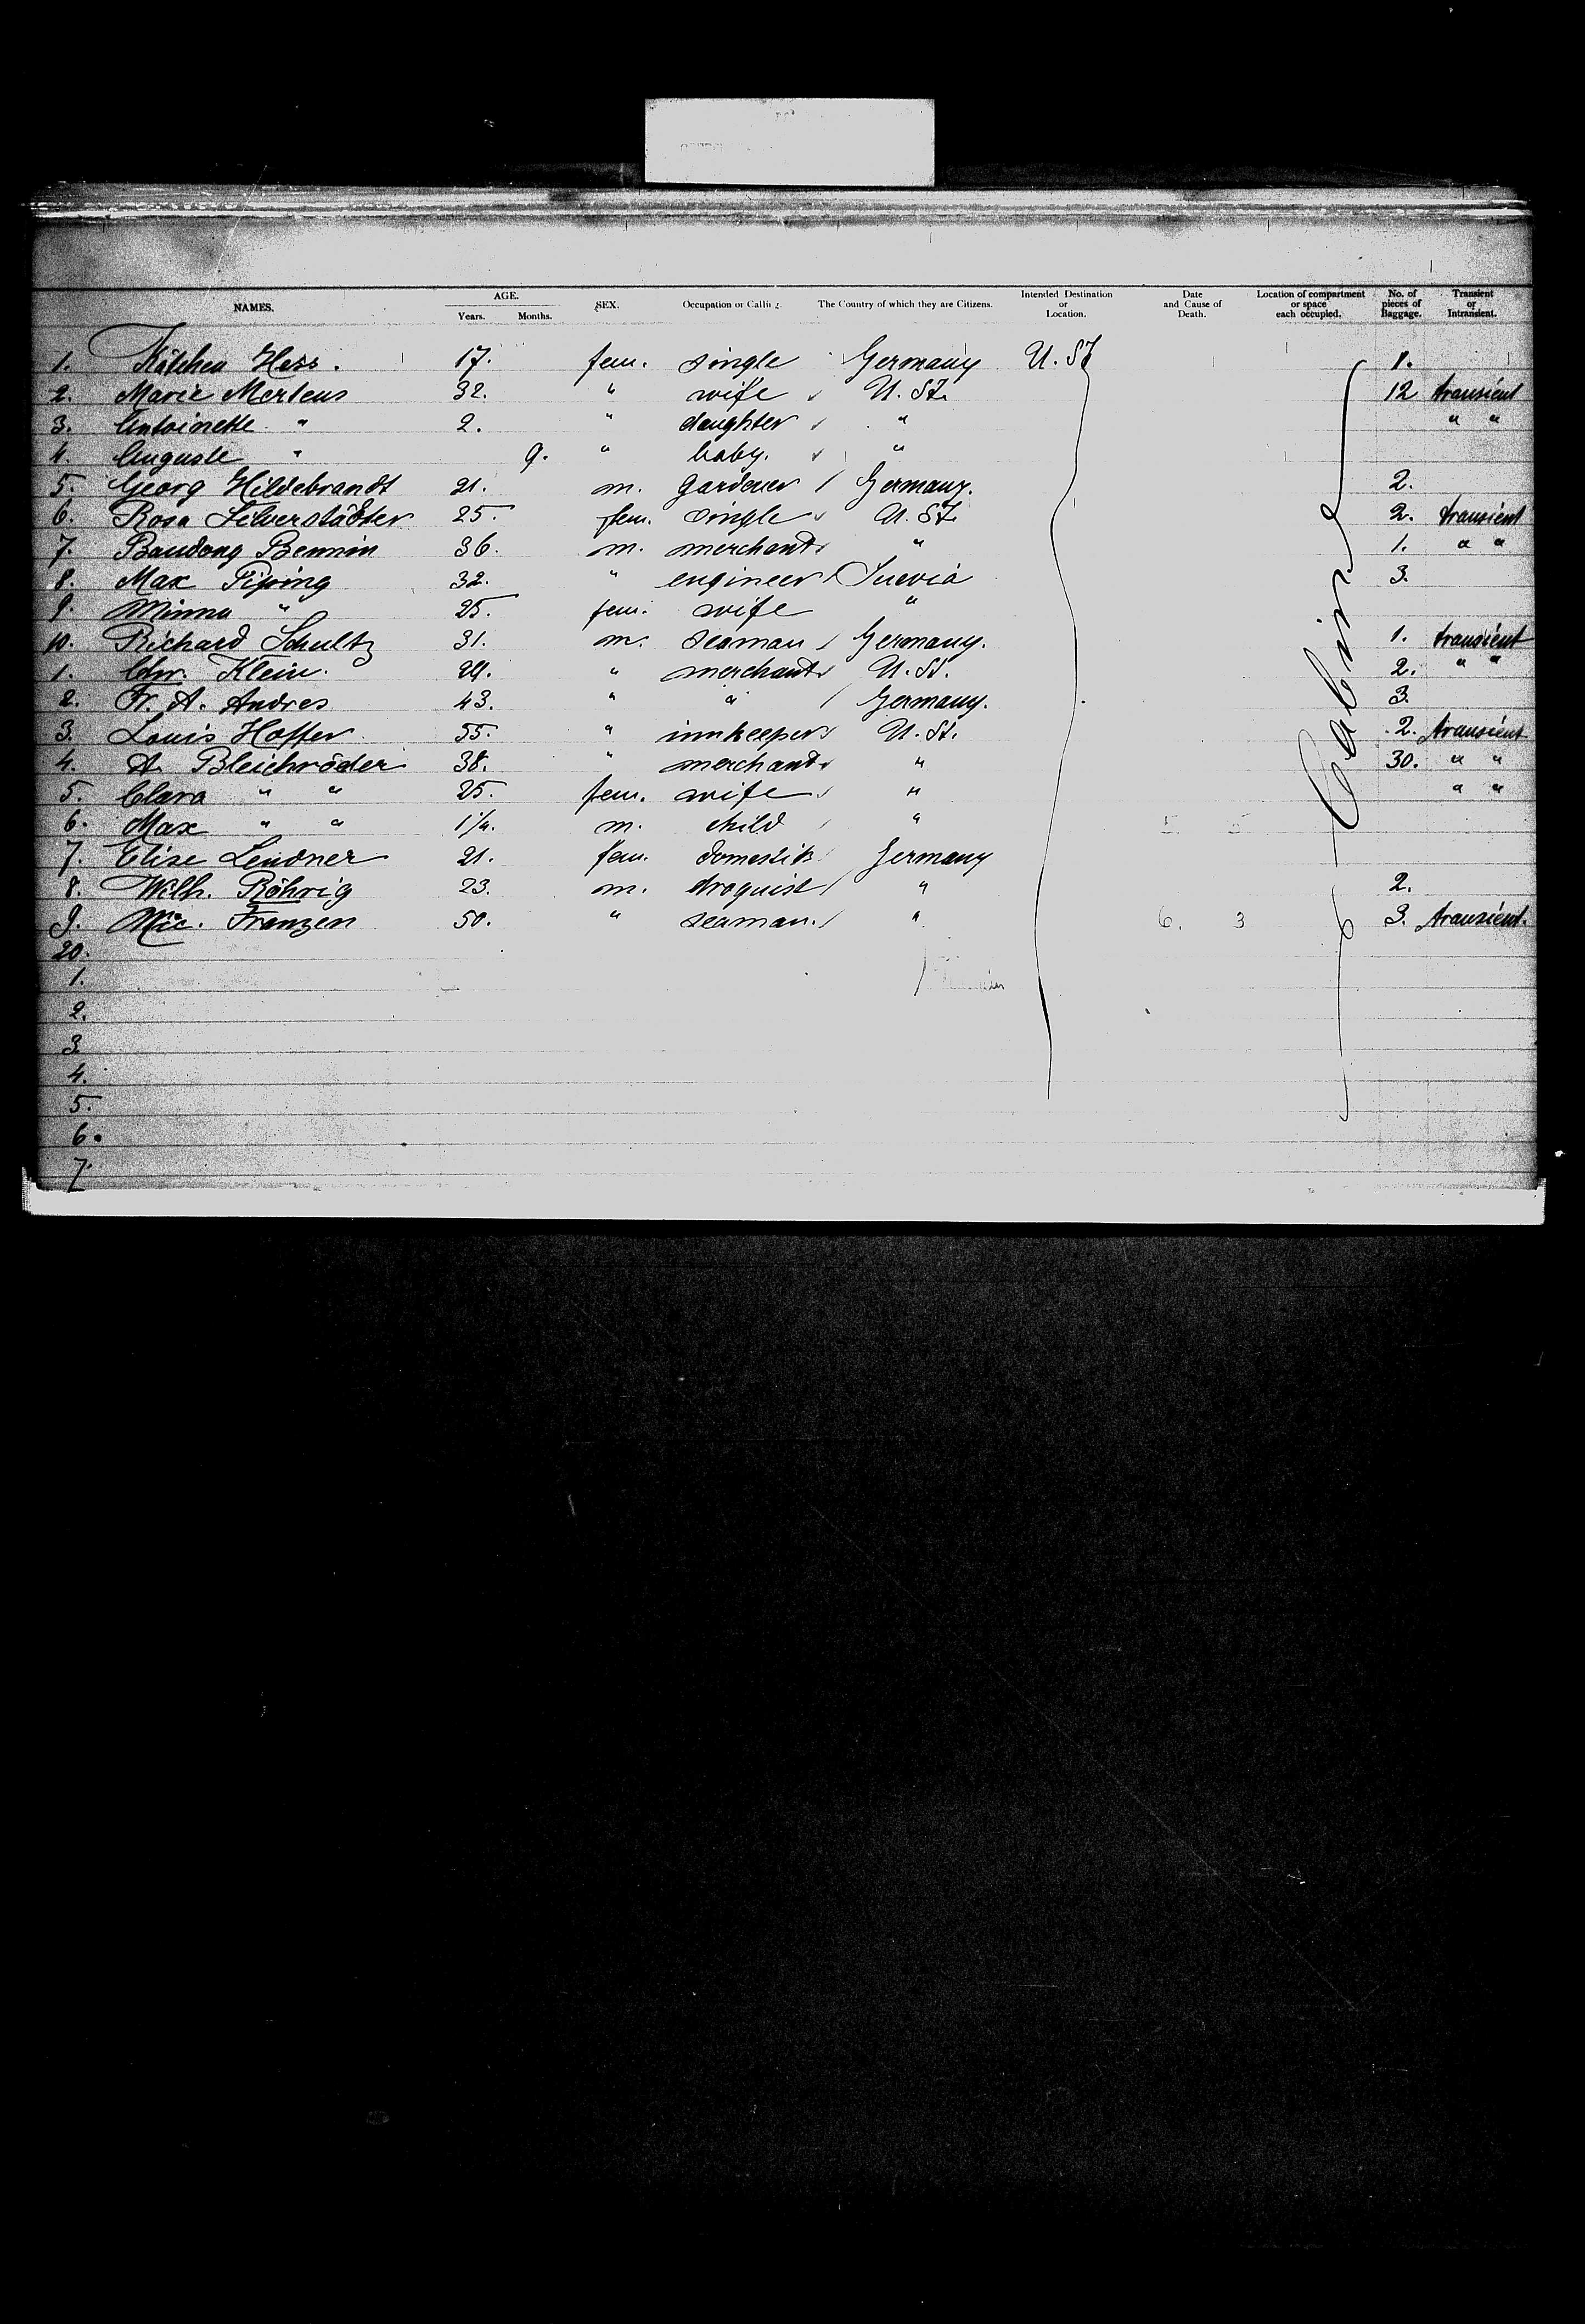 NAMES. AGE. Years. Months. SEX. Occupation or Calling. The Country of which they are Citizens. Intended Destination or Location. Date and Cause of Death. Location of compartment or space each occupied. No. of pieces of Baggage. Transient or Intransient.
1. Kätchen Hess. 17. fem. single Germany U. St 1.
2. Marie Mertens 32. " wife U. St. 12 transient
3. Antoinette " 2. " daughter " " "
4. Auguste " 9. " baby. "
5. Georg Hildebrandt 21. m. gardener Germany. 2.
6. Rosa Silverstädter 25. fem. single U. St. 2. transient
7. Bennin 36. m. merchant " 1. " "
8. Max Piping 32. " engineer Suevia 3.
9. Minna " 25. fem. wife "
10. Richard Schultz 31. m. seaman Germany. 1. transient
1. Chr. Klein. 29. " merchant U. St. 2. " "
2. Fr. A. Andres 43. " " Germany. 3.
3. Louis Hoffer 55. " innkeeper U. St. 2. transient
4. A. Bleichröder 38. " merchant " 30. " "
5. Clara " " 25. fem. wife " " "
6. Max " " 1/4. m. child " 5 5
7. Elise Lendner 21. fem. domestik Germany
8. Wilh. Röhrig 23. m. droguist " 2.
9. Nic. Franzen 50. " seaman. " 6. 3 3. transient.
20.
1.
2.
3
4.
5.
6.
7.
Cabin